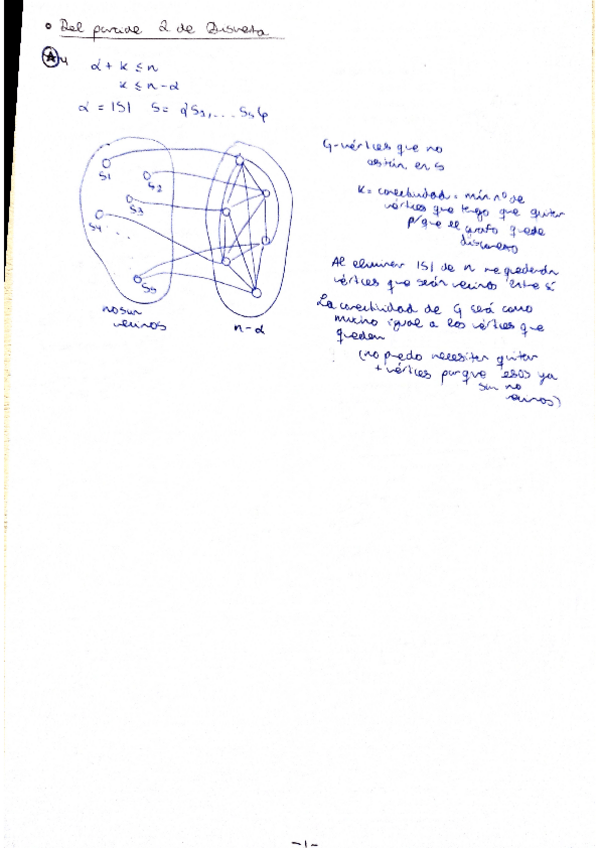 • Del parcial 2 de Discreta
A 4
α + k ≤ n
k ≤ n-α
α = |S| S = {S1, ... S5}
S1
S2
S3
S4
...
S5
no son
vecinos
n-α
G-vértices que no
están en S
K = conectividad = mín nº de
vértices que tengo que quitar
p/que el grafo quede
disconexo
Al eliminar |S| de n me quedarán
vértices que serán vecinos entre sí
La conectividad de G será como
mucho igual a los vértices que
queden
(no puedo necesitar quitar
+ vértices porque esos ya
son no
vecinos)
-1-